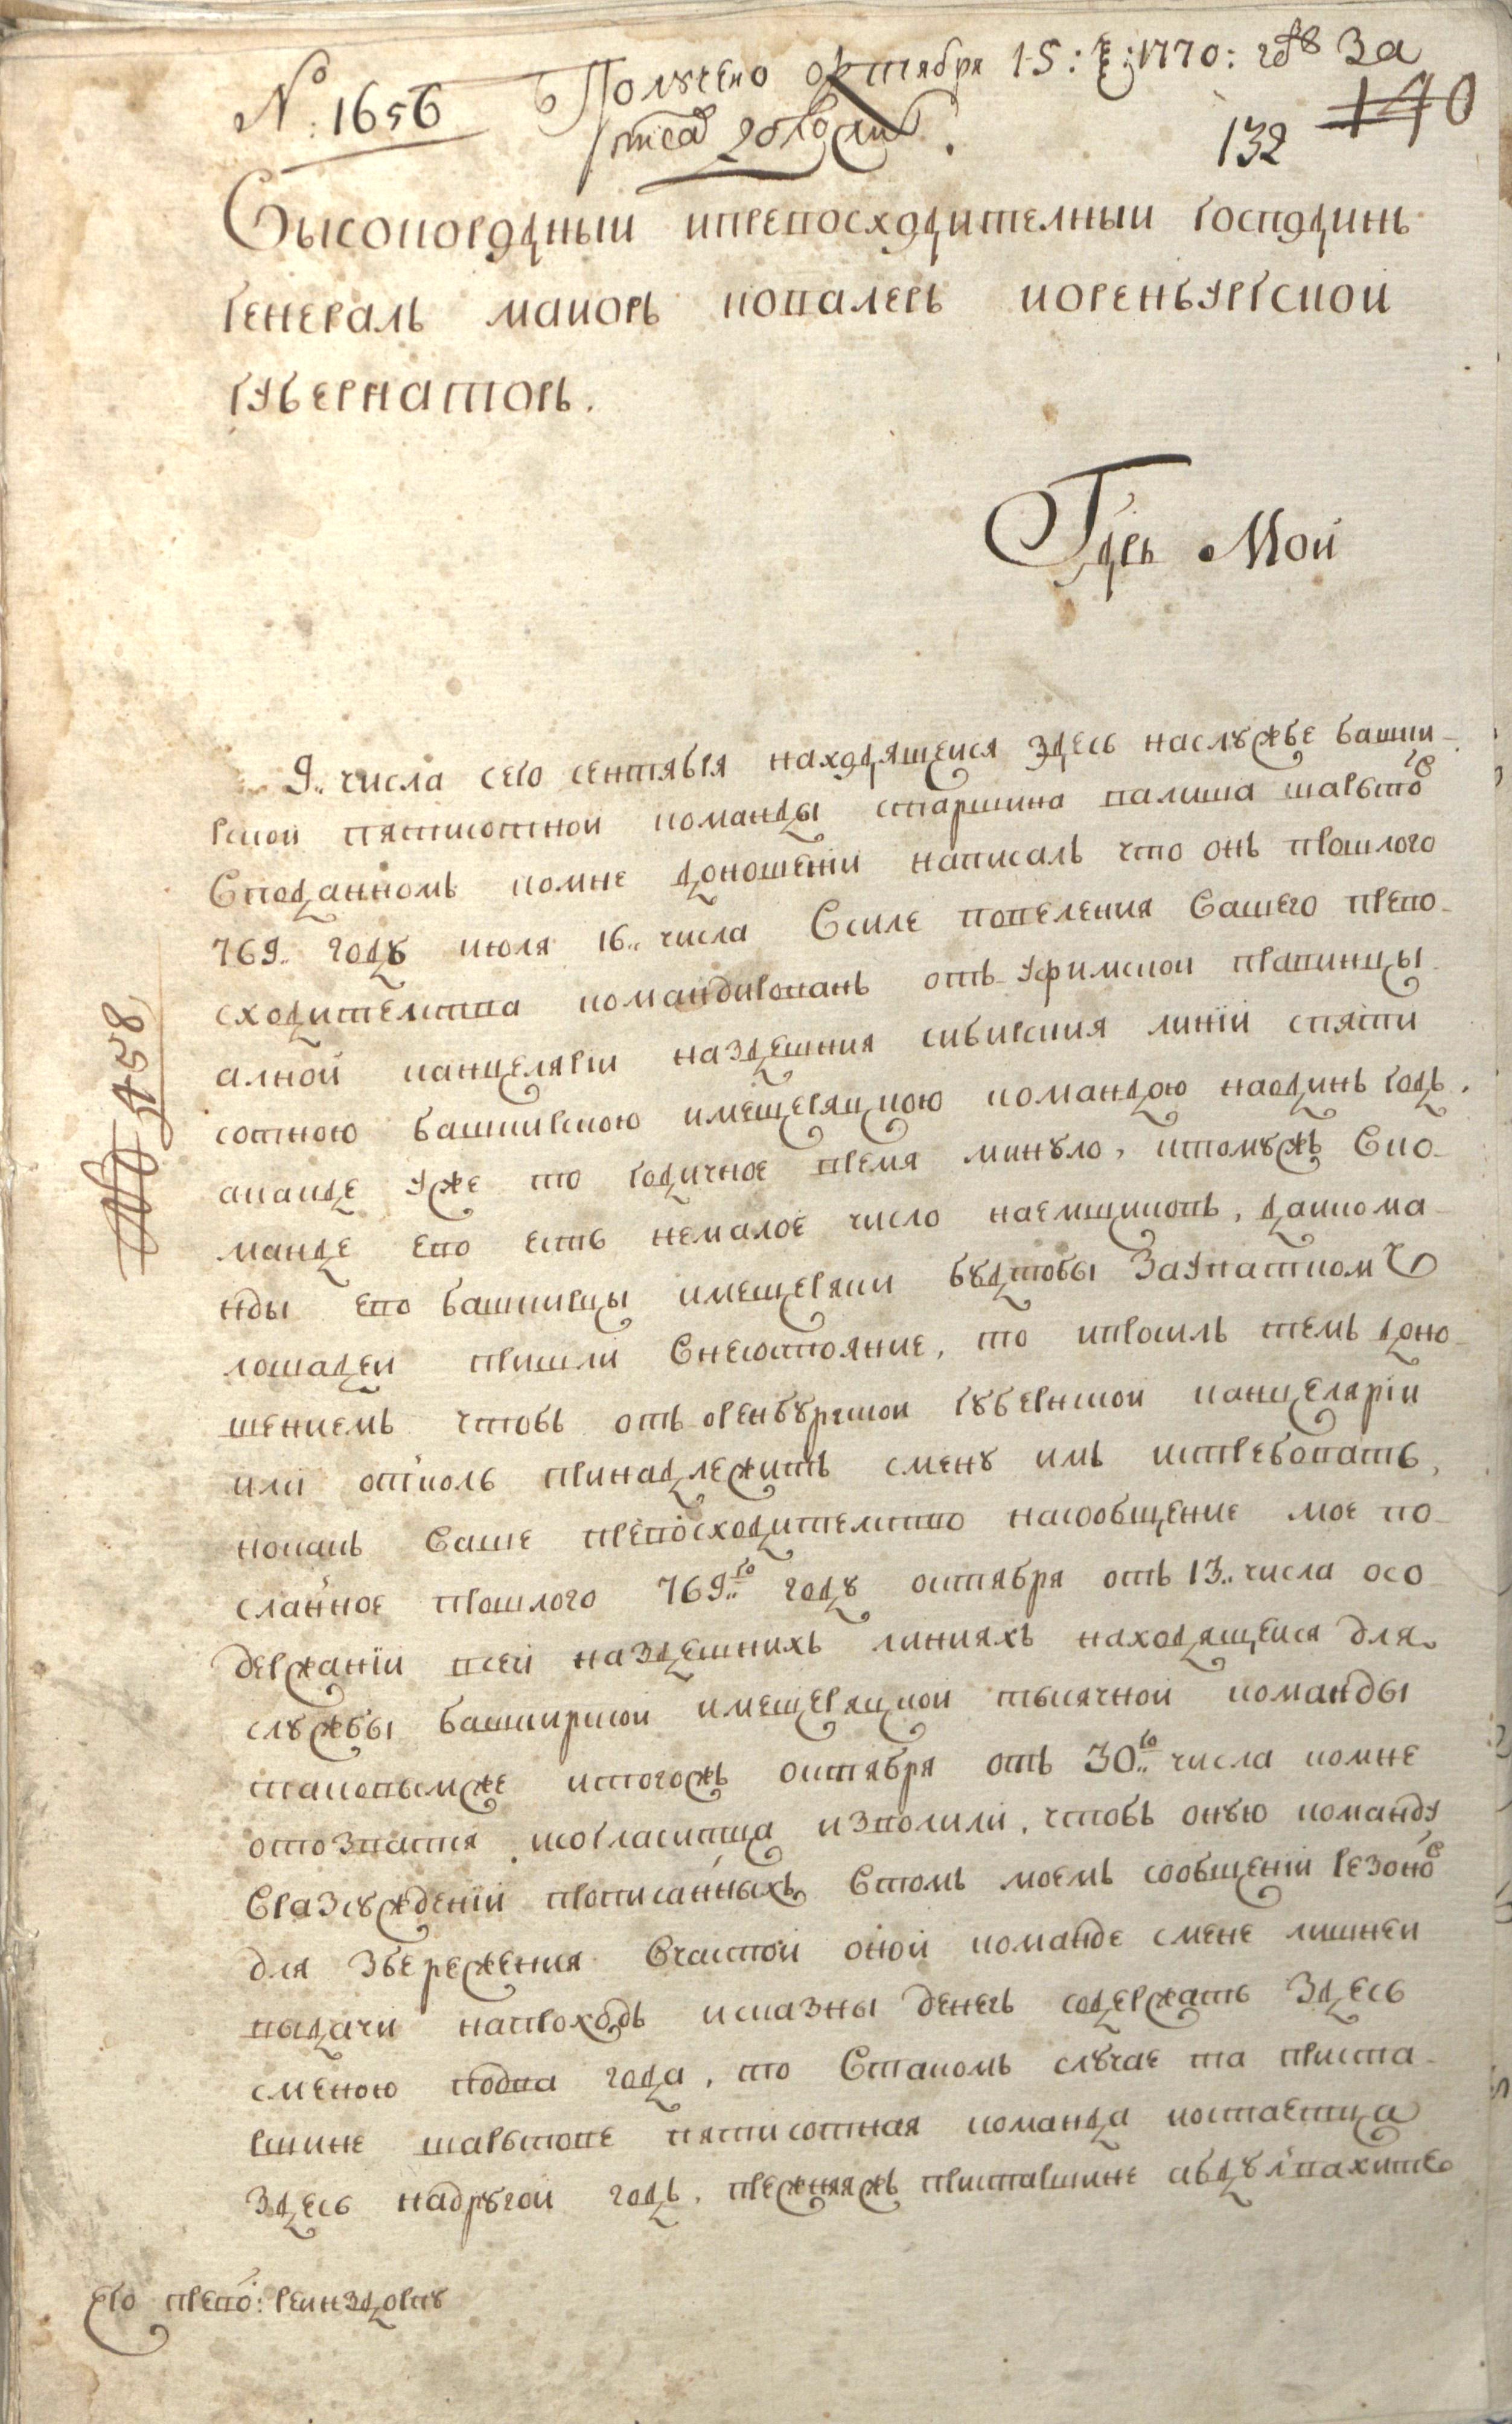 №: 1656
Получено октября 15: ч: 1770: году За
132 140
Высокородный ипревосходителный господинъ
генералъ маиоръ ковалеръ иоренбургской
губернаторъ.
Гдрь Мой
9.. числа сего сентября находящейся здесь наслужбе башки-
рской пятисотной команды старшина валиша шарыповъ
Вподанномъ комне доношении написалъ что онъ прошлого
769.. году июля 16.. числа Всиле повеления Вашего прево-
сходителства командированъ отъ Уфимскойправинцы
алной канцелярии наздешния сибирския линїи спяти
сотною башкирскою имещеряцкою командою наодинъ годъ.
акакде уже то годичное время минуло, итомужъ Вко-
манде ево есть немалое число наемщиковъ, дакиома-
нды ево башкирцы имещеряки будтобы Заупаткомъ
лошадей пришли Внесостояние, то ипросилъ темъ доно-
шениемъ чтобъ отъ оренбургской губернской канцелярїи
или отколь принадлежитъ смену имъ истребовать,
нокакъ Ваше превосходителство насообщение мое по-
сланное прошлого 769..го году октября отъ 13.. числа осо-
держанїи всей наздешнихъ линияхъ находящейся для
службы башкирской имещеряцкой тысячной команды
таковымже итогожъ октября отъ 30..го числа комне
отозватся исогласитца изволили, чтобъ оную команду
Вразсужденїи прописанныхъ Втомъ моемъ сообщенїи резоновъ
для збережения Вчастой оной команде смене лишней
выдачи напроходъ исказны денегъ содержать Здесь
сменою подва года, то Втакомъ случае та пристар-
шине шарыпове пятисотная команда иостаетца
Здесь надругой годъ, прежняяжъ пристаршине абдулвахите
Его прево: реинздорпу
№ 458